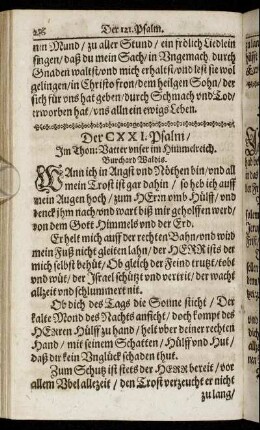 236 Der 121. Psalm.
nin Mund/ zu aller Stund/ ein frölich Liedlein
singen/ daß du mein Sach/ in Vngemach/ durch
Gnaden waltst/ vnd mich erhaltst/ vnd lest sie wol
gelingen/ in Christo fron/ dem heilgen Sohn/ der
sich für vns hat geben/ durch Schmach vnd Tod/
erworben hat/ vns alln ein ewigs Leben.
Der CXXI. Psalm/
Im Thon: Vatter vnser im Himmelreich.
Burchard Waldis.
WAnn ich in Angst vnd Nöthen bin/ vnd all
mein Trost ist gar dahin/ so heb ich auff
mein Augen hoch/ zum HErrn vmb Hülff/ vnd
denck ihm nach/ vnd wart biß mir geholffen werd/
von dem Gott Himmels vnd der Erd.
Er helt mich auff der rechten Bahn/ vnd wird
mein Fuß nicht gleiten lahn/ der HERR ists der
mich selbst behüt/ Ob gleich der Feind trutzt/ tobt
vnd wüt/ der Jsrael schützt vnd vertrit/ der wacht
allzeit vnd schlummert nit.
Ob dich des Tags die Sonne sticht/ Der
kalte Mond des Nachts anficht/ doch kompt des
HErren Hülff zu hand/ helt vber deiner rechten
Hand/ mit seinem Schatten/ Hülff vnd Hut/
daß dir kein Vnglück schaden thut.
Zum Schutz ist stets der HERR bereit/ vor
allem Vbel allezeit/ den Trost verzeucht er nicht
zu lang/